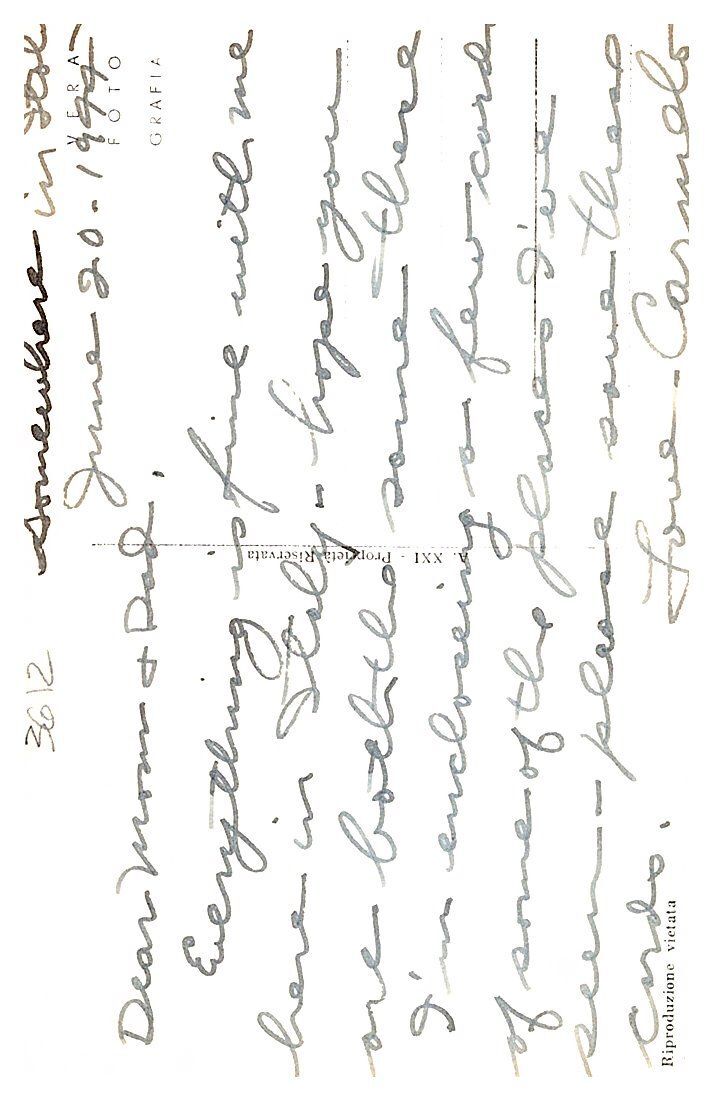 3612
Somewhere in Italy
June 20-1944
VERA
FOTO
GRAFIA
Dear Mom + Dad,
Everything is fine with me
here in Italy - hope you
are both the same there
I'm enclosing a few card
of some of the places I've
seen - please save these
cards.
Love - Carmelo
A. XXI - Proprietà Riservata
Riproduzione vietata